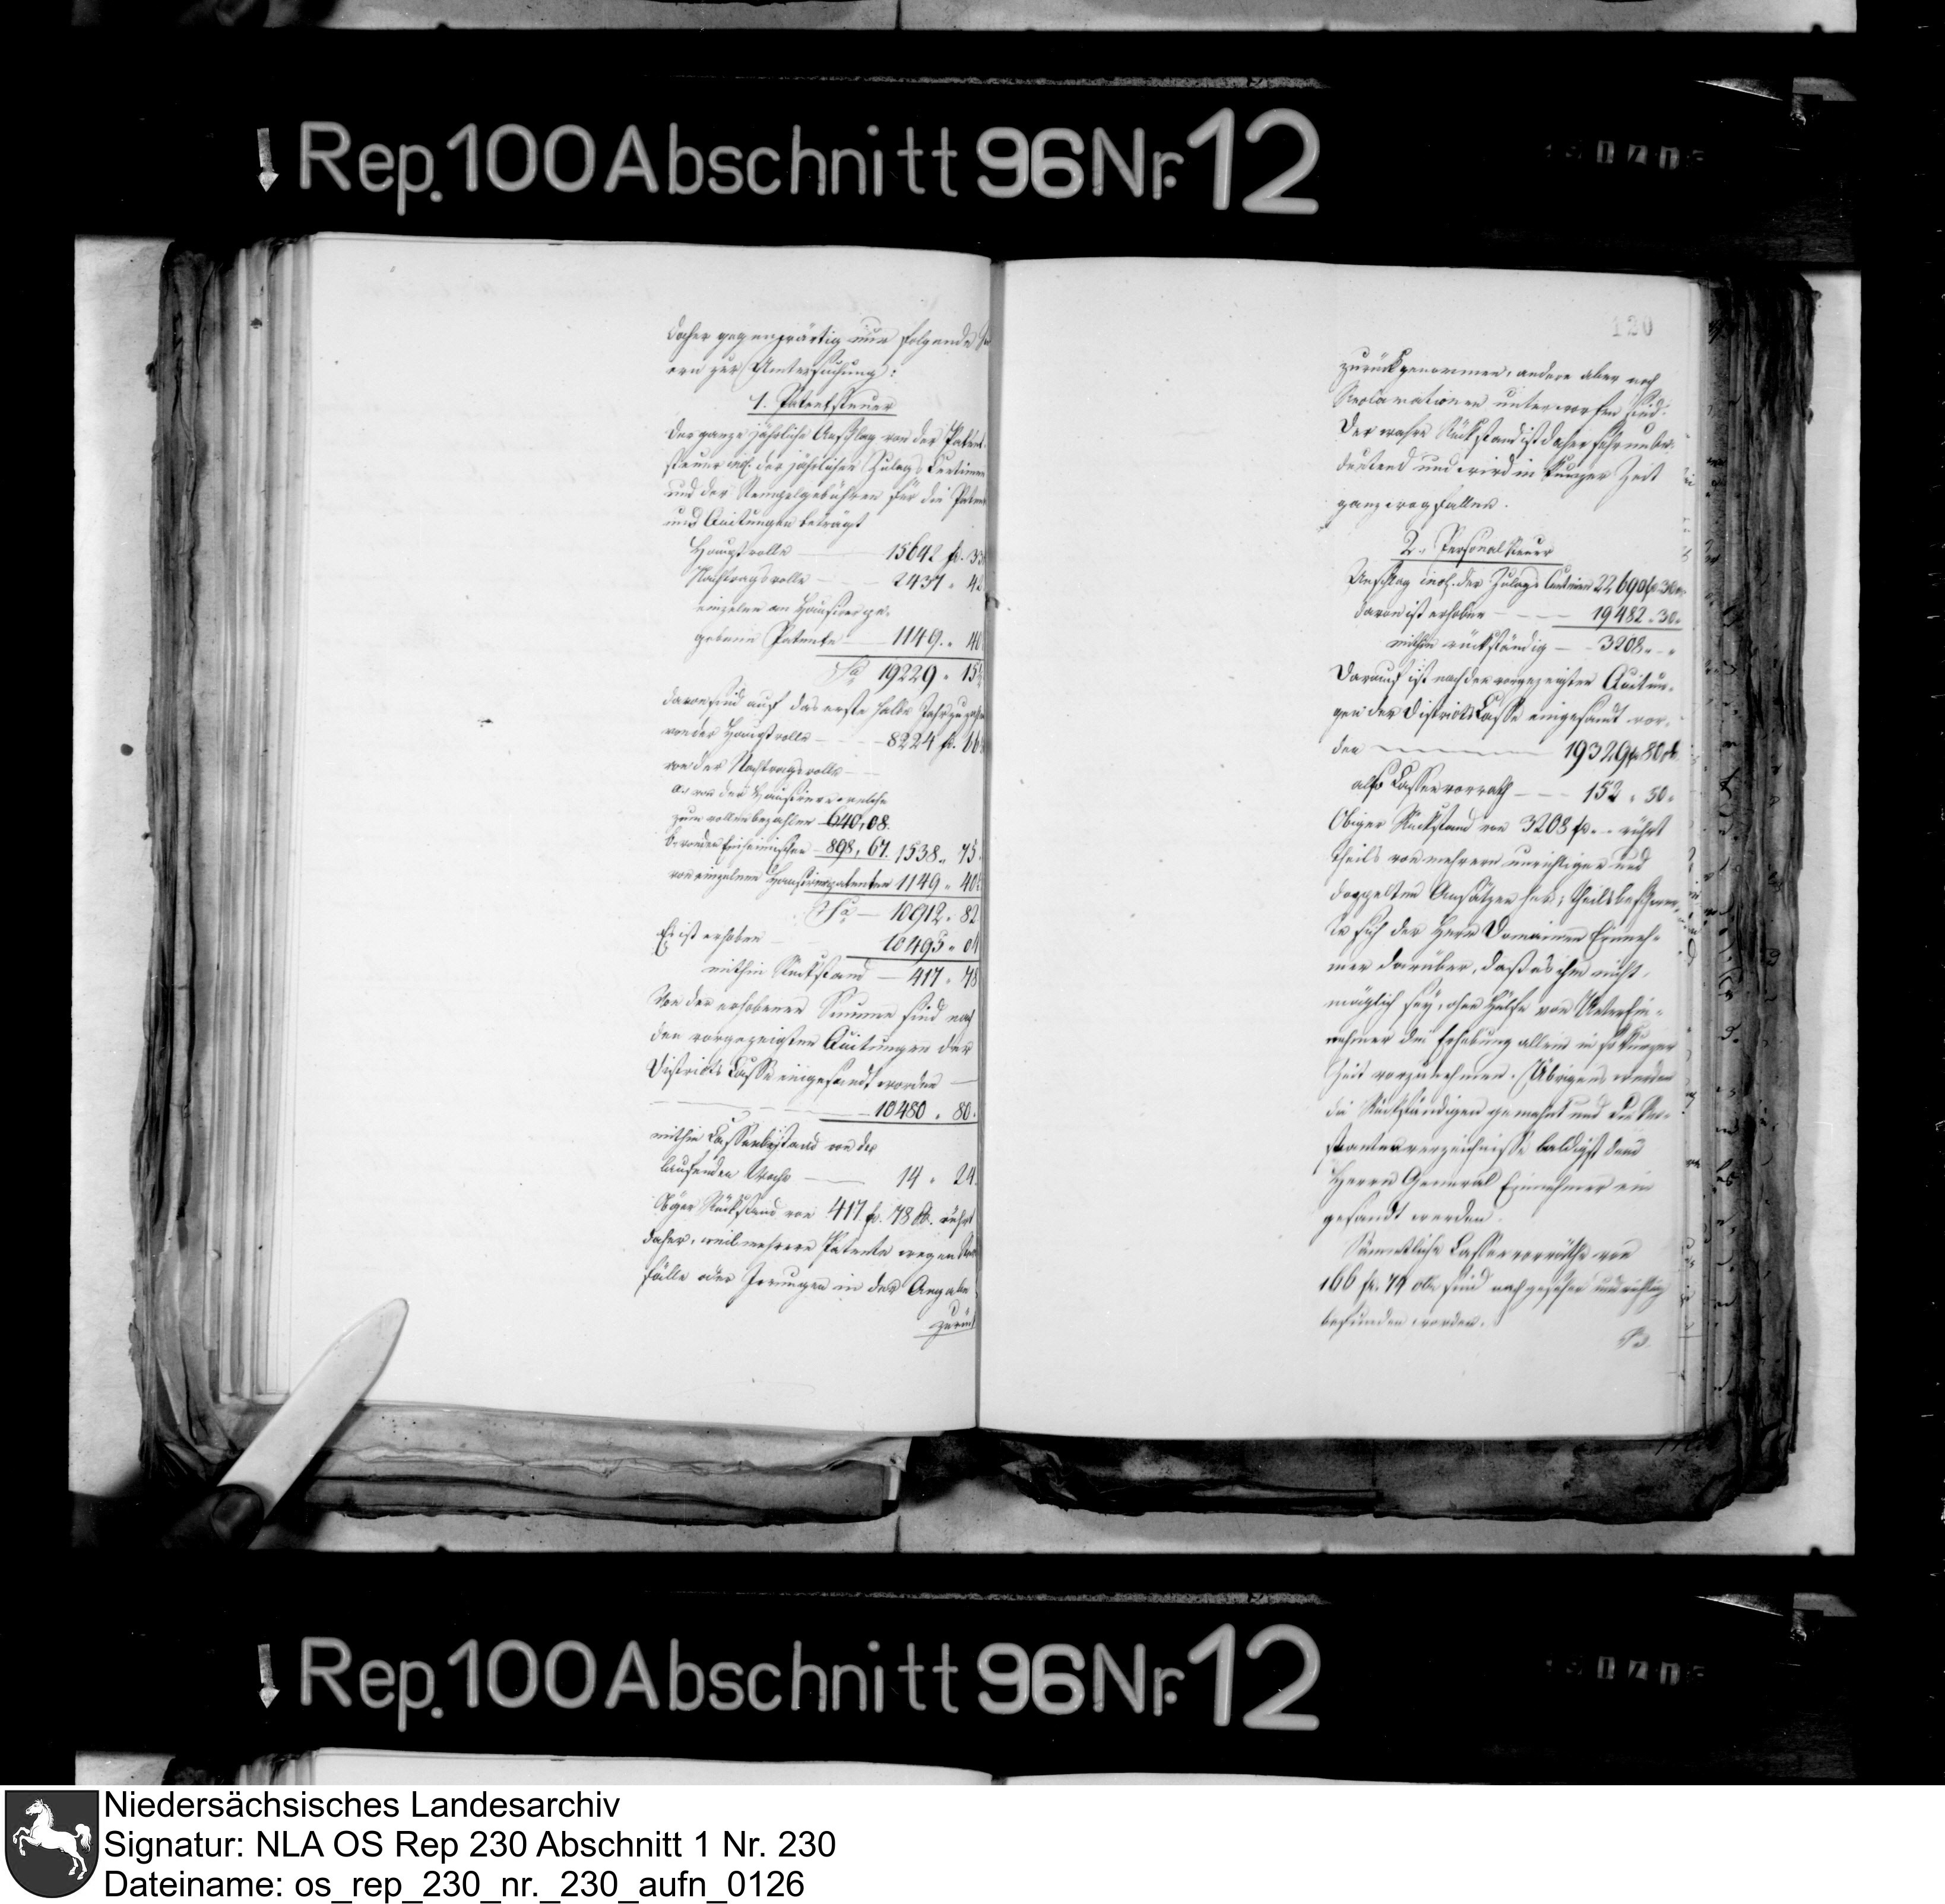 Rep. 100 Abschnitt 96 Nr. 12
daher gegenwärtig nur folgende
zur Untersuchung:
1. Patentsteuer
Der ganze jährliche Anschlag von der Patent-
steuer incl. der jährlichen Zulags Centimen
und der Stempelgebühren für die Patente
und Quitungen beträgt
Hauptrolle — 15642 fr. 33
Nachtragsrolle — 2437 " 42
einzelne an Hausirer ge-
gebene Patente — 1149 " 40
Sa 19229 " 15
davon sind auf das erste halbe Jahr zu
von der Hauptrolle — 8224 fr. 66
von der Nachtragsrolle —
a. von den Hausirern welche
zum vollen bezahlen 640,08.
b. von den Einheimischen 898,67. 1538 " 75
von einzelnen Hausirerpatenten 1149 " 40
Sa — 10912 " 82
Es ist erhoben 10495 " 04
mithin Rückstand — 417 " 78
Von der erhobenen Summe sind nach
den vorgezeigten Quitungen der
Districts Casse eingesandt worden —
10480 " 80.
mithin Cassenbestand von der
laufenden Woche — 14 " 24.
Obiger Rückstand von 417 fr. 78 rührt
daher, weil mehrere Patente wegen
fälle oder Irrungen in der Angabe
zurück
120
zurückgenommen, andere aber noch
Reclamationen unterworfen sind.
Der wahre Rückstand ist daher sehr unbe-
deutend und wird in kurzer Zeit
ganz wegfallen.
2. Personalsteuer
Anschlag incl. der Zulage Centimen 22690 fr 30
davon ist erhoben — 19482 " 30 "
mithin rückständig — 3208 " "
Darauf ist nach den vorgezeigten Quitun-
gen der Districts Casse eingesandt wor-
den 19329 fr 80
also Cassenvorrath — 152 " 50 "
Obiger Rückstand von 3208 fr. rührt
theils von mehrern unrichtigen und
doppelten Ansätzen her; theils beschwer-
te sich der Herr Domainen Einneh-
mer darüber, daß es ihm nicht
möglich sey, ohne Hülfe von Unterein-
nehmer die Erhebung allein in so kurzer
Zeit vorzunehmen. Übrigens werden
die Rückständigen gemahnt und die Re-
stantenverzeichnisse baldigst dem
Herrn General Einnehmer ein
gesandt werden.
Sämmtliche Cassenvorräthe von
166 fr. 74 sind nachgesehen und richtig
befunden worden.
Rep. 100 Abschnitt 96 Nr. 12
Niedersächsisches Landesarchiv
Signatur: NLA OS Rep 230 Abschnitt 1 Nr. 230
Dateiname: os_rep_230_nr._230_aufn_0126